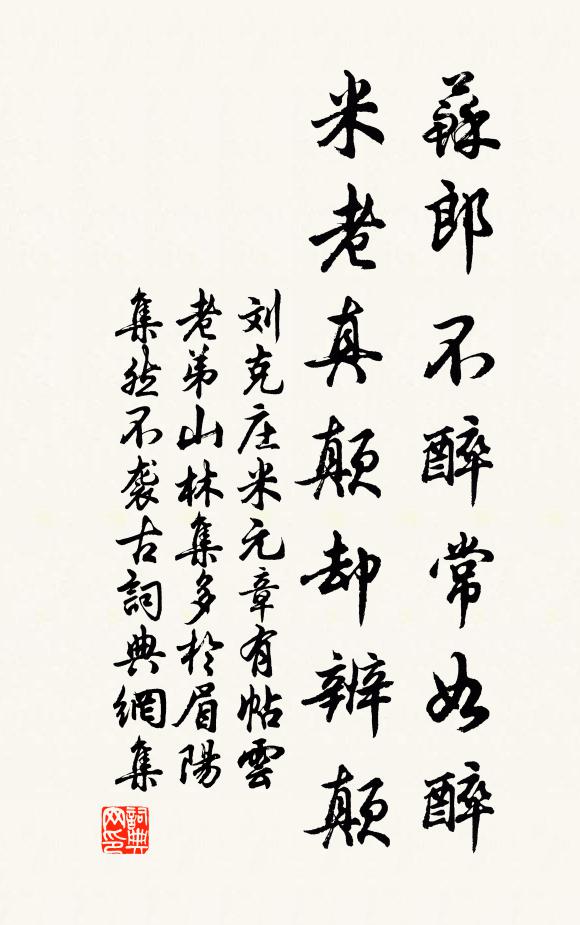 蘇郎不醉常如醉
米老真顛却辨顛
刘克庄米元章有帖雲
老弟山林集多於眉陽
集然不袭古詞典網集
詞典網印